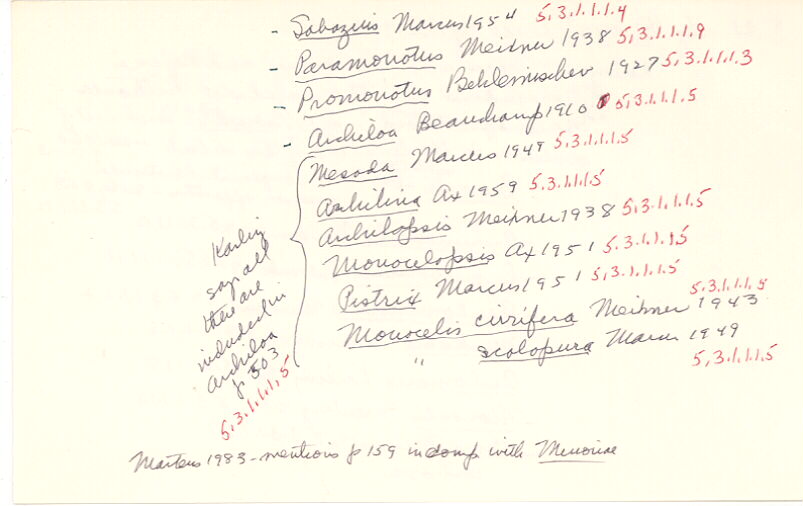 - Sabazius Marcus 1954 5.3.1.1.1.4
- Paramonotus Meixner 1938 5.3.1.1.1.9
- Promonotus Beklemischev 1927 5.3.1.1.1.3
- Archiloa Beauchamp 1910 5.3.1.1.1.5
Mesoda Marcus 1949 5.3.1.1.1.5
Archilina Ax 1959 5.3.1.1.1.5
Archilopsis Meixner 1938 5.3.1.1.1.5
Monocelopsis Ax 1951 5.3.1.1.1.5
Pistrix Marcus 1951 5.3.1.1.1.5
Monocelis cirrifera Meixner 1943 5.3.1.1.1.5
" scolopura Marcus 1949
5.3.1.1.1.5
Karling
says all
these are
included in
Archiloa
p 503
5.3.1.1.1.5
Martens 1983 - mentions p 159 in comp with